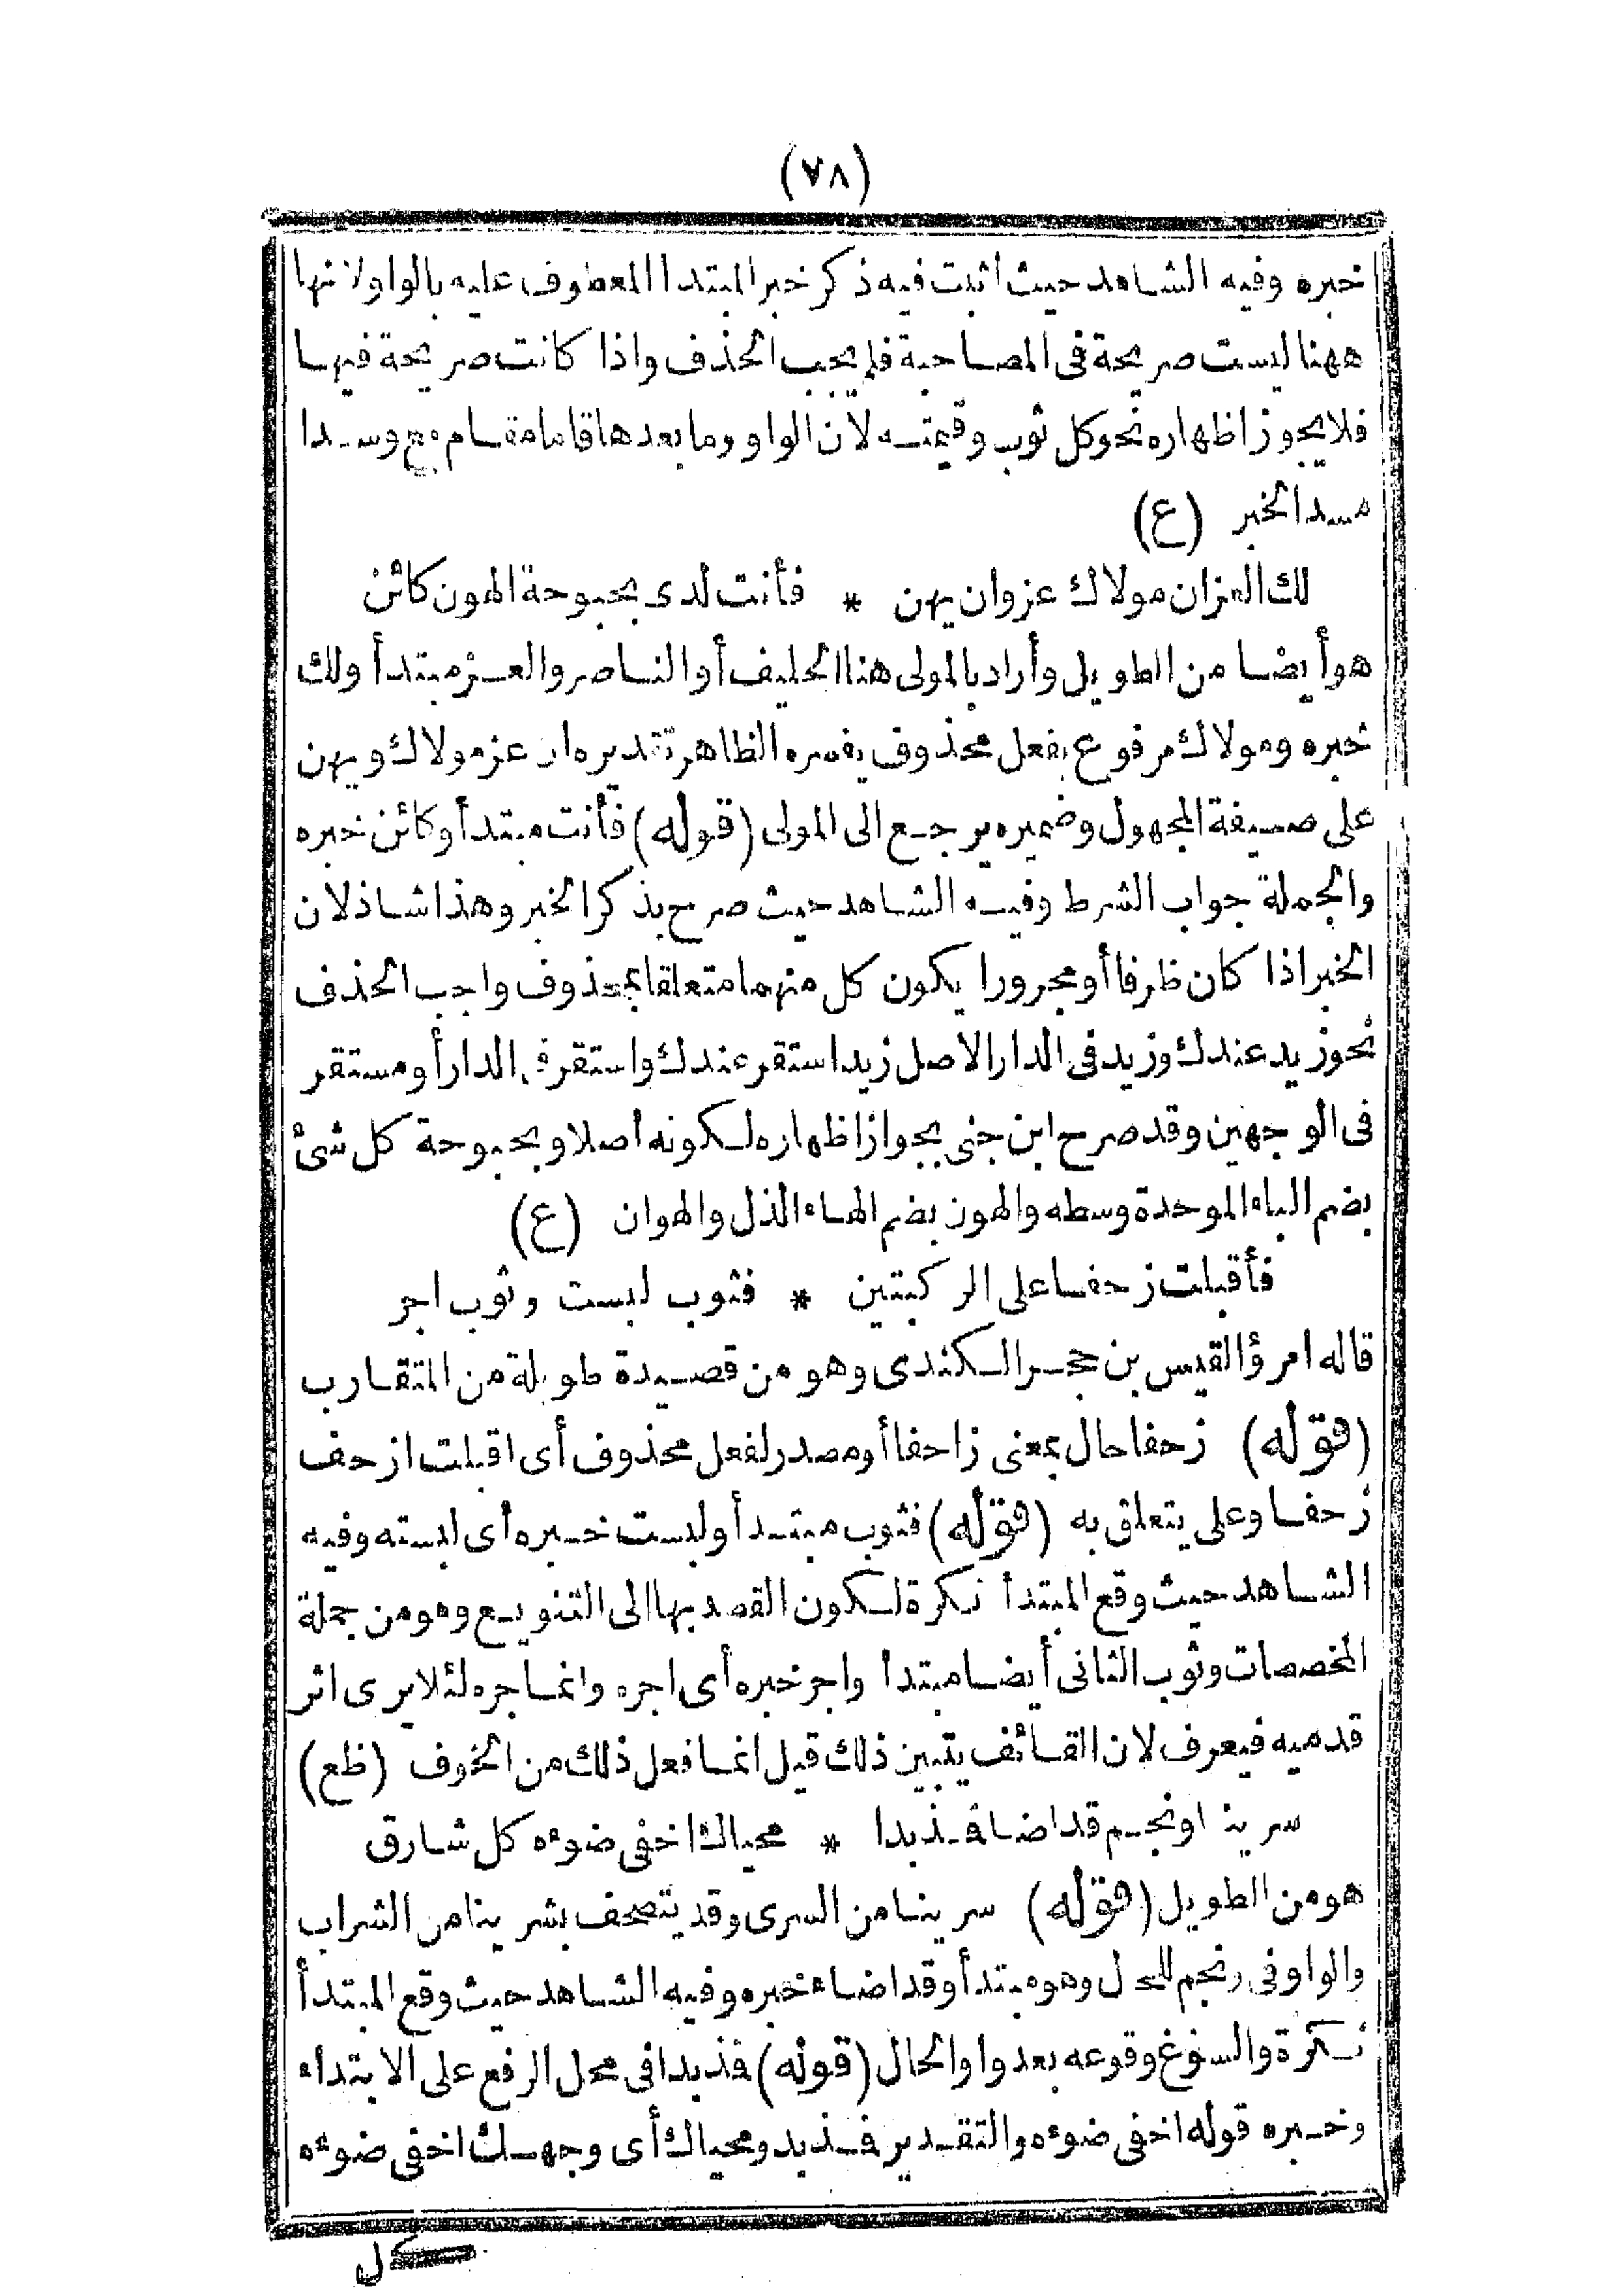 (٧٨)
خبره وفيه الشاهد حيث اثبت فيه ذكر خبر المبتدا المعطوف عليه بالواو لانها
ههنا ليست صريحة فى المصاحبة فلم يجب الحذف واذا كانت صريحة فيها
فلا يجوز اظهاره نحو كل ثوب وقيمته لان الواو وما بعدها قاما مقام مع وسدا
مسد الخبر (ع)
لك العز ان مولاك عز وان يهن * فأنت لدى بحبوحة الهون كائن
هو أيضا من الطويل وأراد بالمولى هنا الحليف أو الناصر والعز مبتدأ ولك
خبره ومولاك مرفوع بفعل محذوف يفسره الظاهر تقديره ان عز مولاك ويهن
على صيغة المجهول وضميره يرجع الى المولى (قوله) فأنت مبتدأ وكائن خبره
والجملة جواب الشرط وفيه الشاهد حيث صرح بذكر الخبر وهذا شاذ لان
الخبر اذا كان ظرفا أو مجرورا يكون كل منهما متعلقا بمحذوف واجب الحذف
نحو زيد عندك وزيد فى الدار الاصل زيد استقر عندك واستقر فى الدار أو مستقر
فى الوجهين وقد صرح ابن جنى بجواز اظهاره لكونه أصلا وبحبوحة كل شئ
بضم الباء الموحدة وسطه والهون بضم الهاء الذل والهوان (ع)
فأقبلت زحفا على الركبتين * فثوب لبست وثوب اجر
قاله امرؤ القيس بن حجر الكندى وهو من قصيدة طويلة من المتقارب
(قوله) زحفا حال بمعنى زاحفا أو مصدر لفعل محذوف أى اقبلت ازحف
زحفا وعلى يتعلق به (قوله) فثوب مبتدأ ولبست خبره أى لبسته وفيه
الشاهد حيث وقع المبتدأ نكرة لكون القصد بها الى التنويع وهو من جملة
المخصصات وثوب الثانى أيضا مبتدا واجر خبره أى اجره وانما جره لئلا يرى اثر
قدميه فيعرف لان القائف يتبين ذلك قيل انما فعل ذلك من الخوف (ظع)
سرينا ونجم قد اضاء فمذ بدا * محياك اخفى ضوءه كل شارق
هو من الطويل (قوله) سرينا من السرى وقد يتصحف بشربنا من الشراب
والواو فى ونجم للحال وهو مبتدأ وقد اضاء خبره وفيه الشاهد حيث وقع المبتدأ
نكرة والمسوغ وقوعه بعد واو الحال (قوله) فمذ بدا فى محل الرفع على الابتداء
وخبره قوله اخفى ضوءه والتقدير فمذ بدو محياك أى وجهك اخفى ضوءه
كل